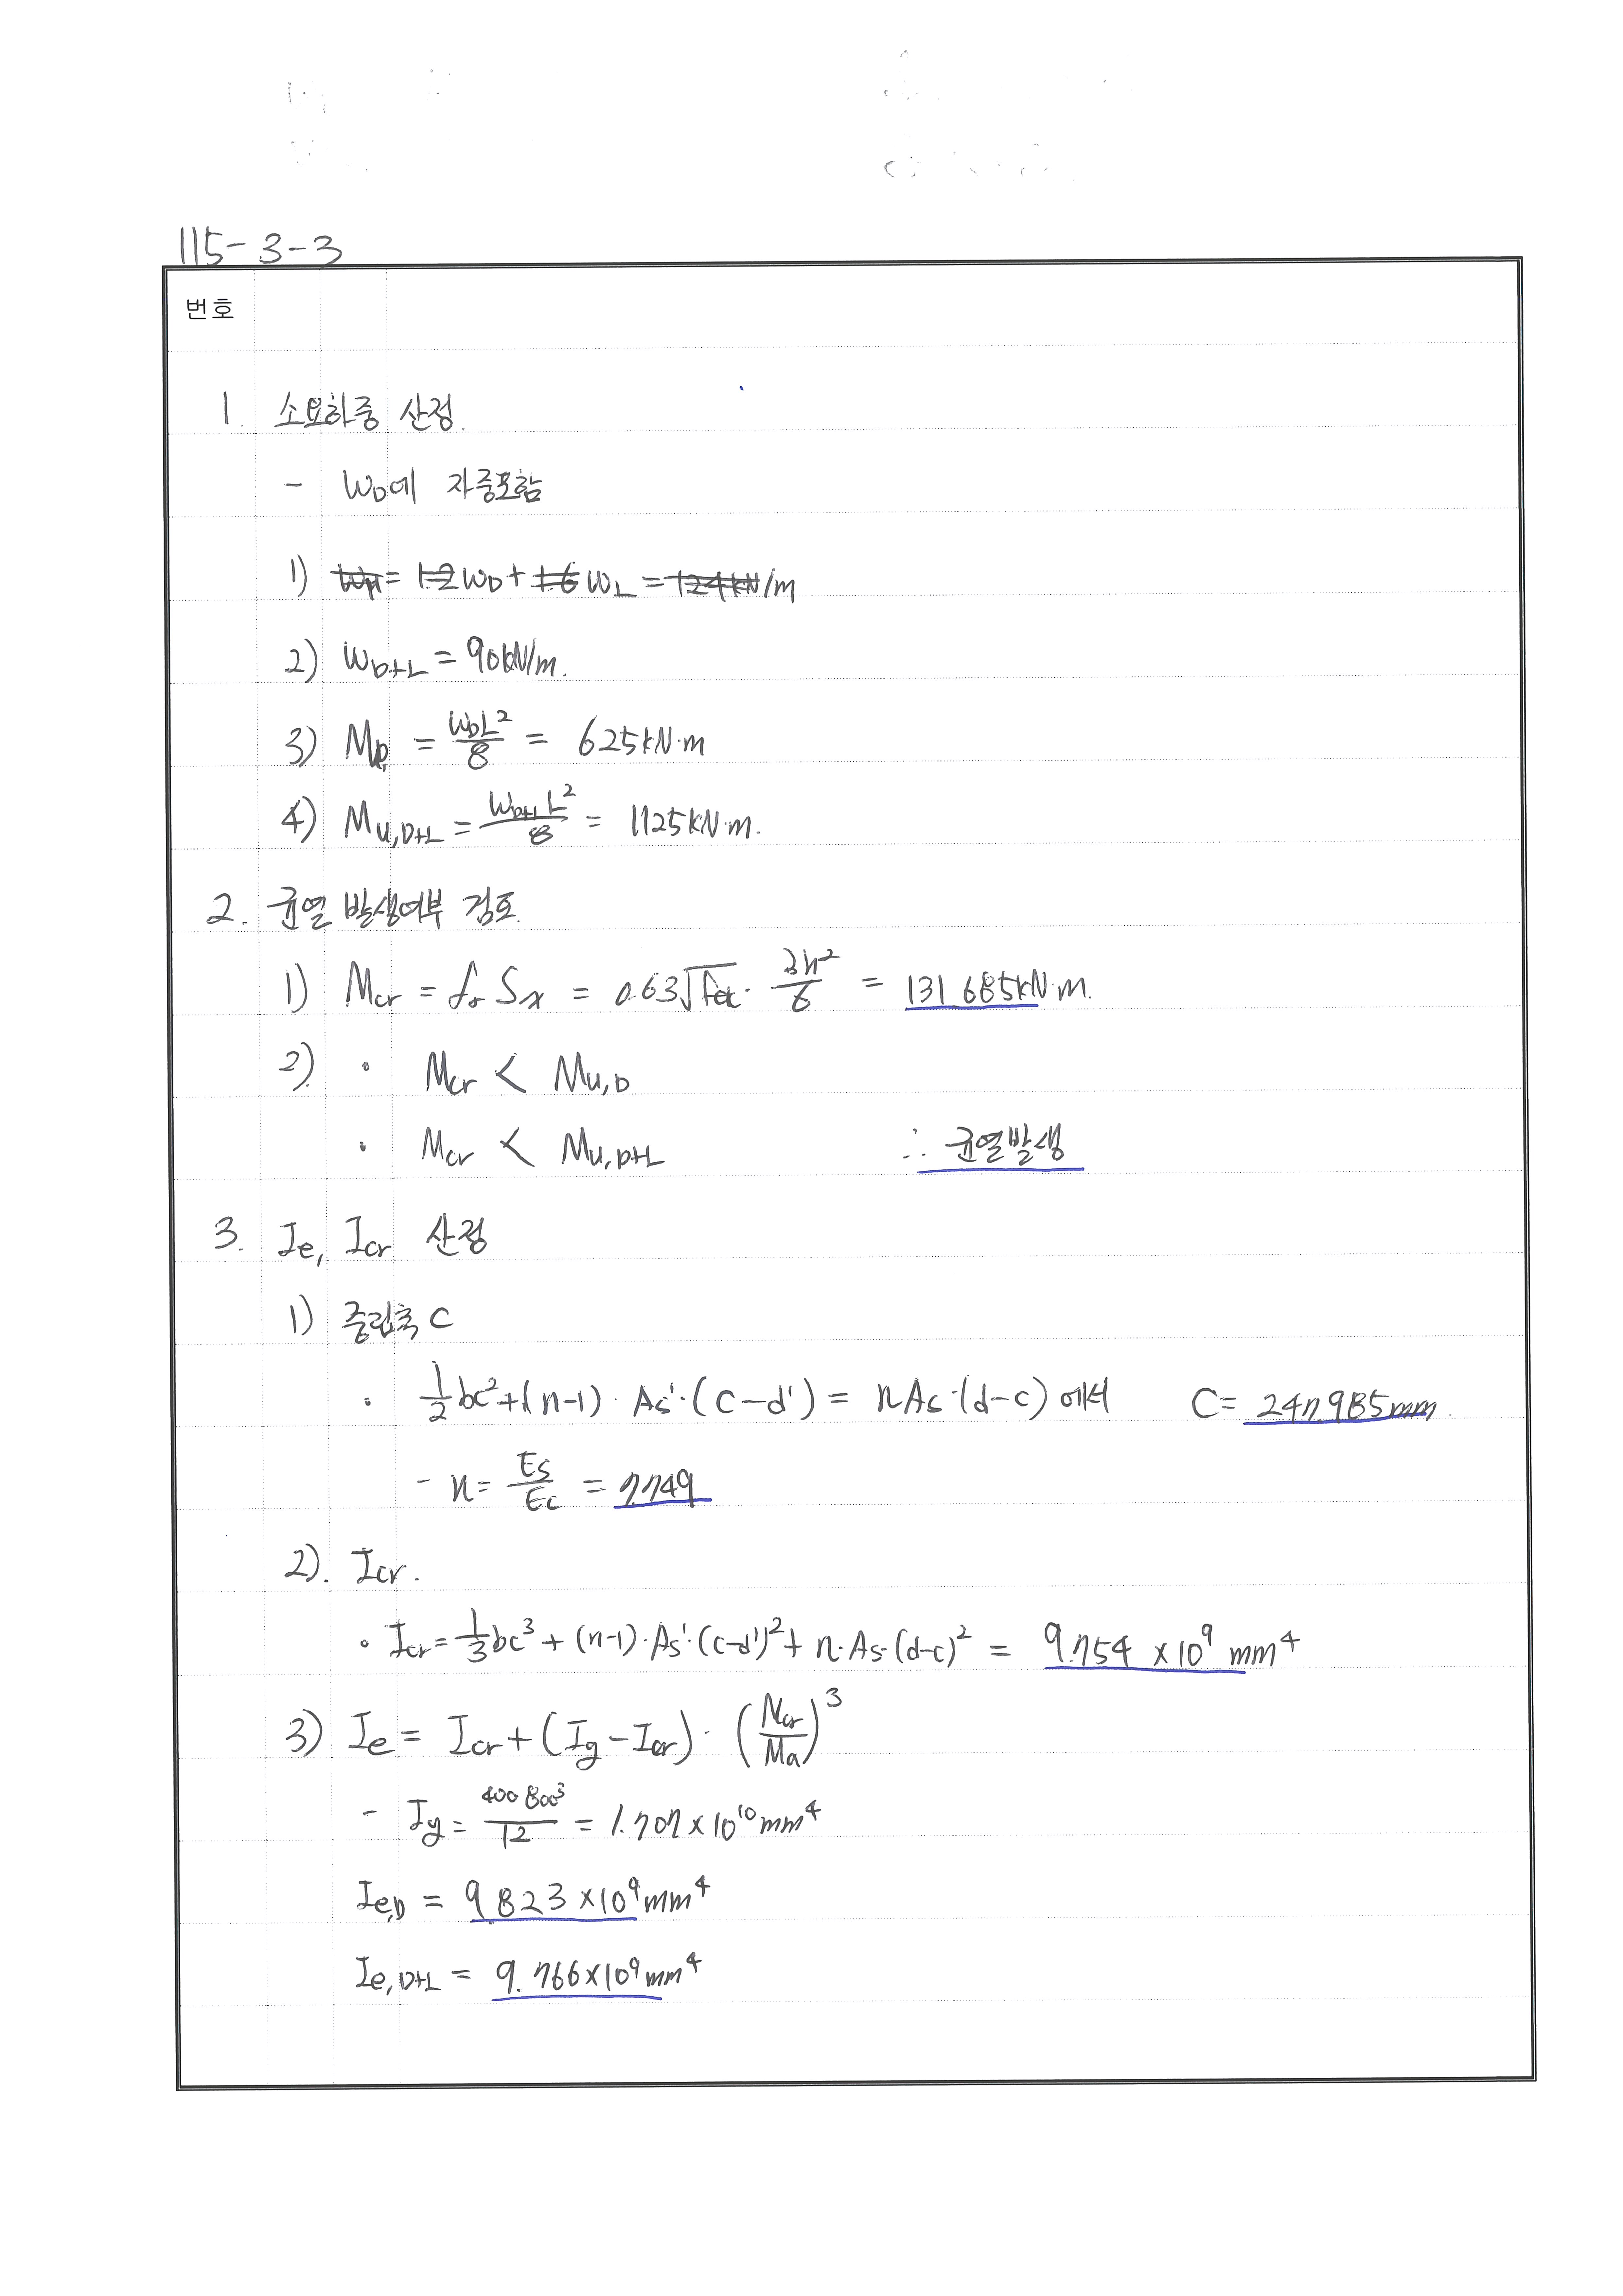 115-3-3
번호
1. 소요하중 산정.
- WD에 자중포함
1) Wu = 1.2WD + 1.6WL = 124kN/m
2) WD+L = 90kN/m.
3) MD = WDL²/8 = 625kN·m
4) Mu,D+L = WD+L L²/8 = 1125kN·m.
2. 균열 발생여부 검토.
1) Mcr = fr Sx = 0.63√fck · bh²/6 = 131.685kN·m.
2). · Mcr < Mu,D
· Mcr < Mu,D+L ∴ 균열발생
3. Ie, Icr 산정
1) 중립축 C
· 1/2 bc² + (n-1) · As' · (c-d') = nAs · (d-c) 에서 C = 247.985mm.
- n = Es/Ec = 7.749
2). Icr.
· Icr = 1/3 bc³ + (n-1) · As' · (c-d')² + n · As · (d-c)² = 9.754 × 10⁹ mm⁴
3) Ie = Icr + (Ig - Icr) · (Mcr/Ma)³
- Ig = 400·800³/12 = 1.707 × 10¹⁰ mm⁴
Ie,D = 9.823 × 10⁹ mm⁴
Ie,D+L = 9.766 × 10⁹ mm⁴